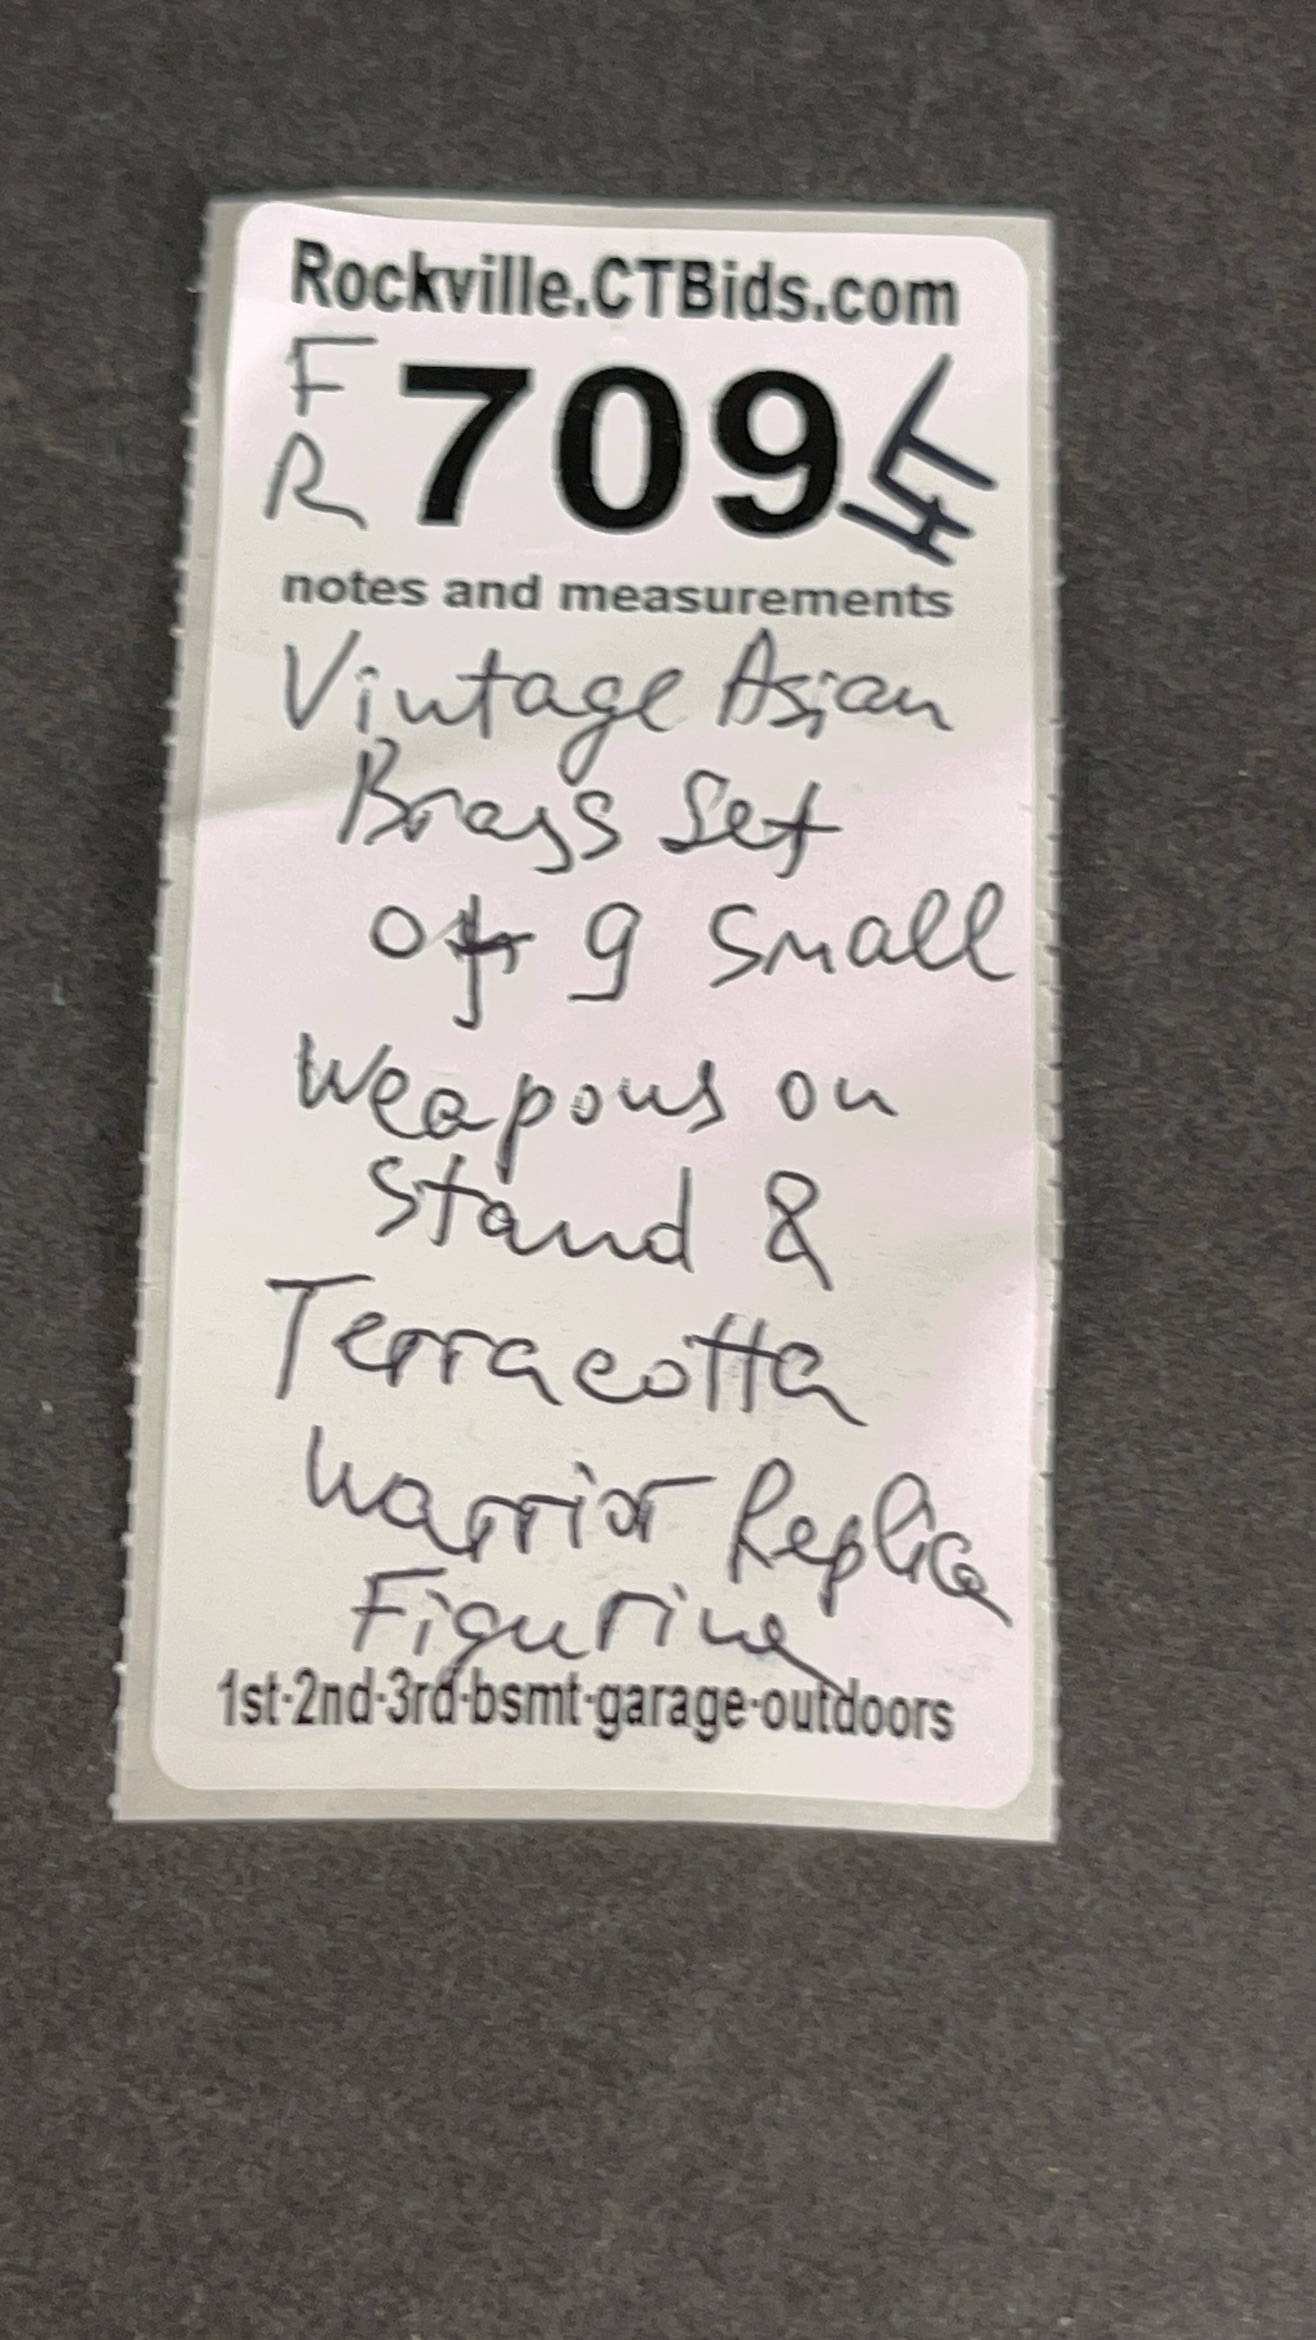 Rockville.CTBids.com
F
R
709
notes and measurements
Vintage Asian
Brass Set
of 9 Small
Weapons on
Stand &
Terracotta
Warrior Replica
Figurine
1st-2nd-3rd-bsmt-garage-outdoors